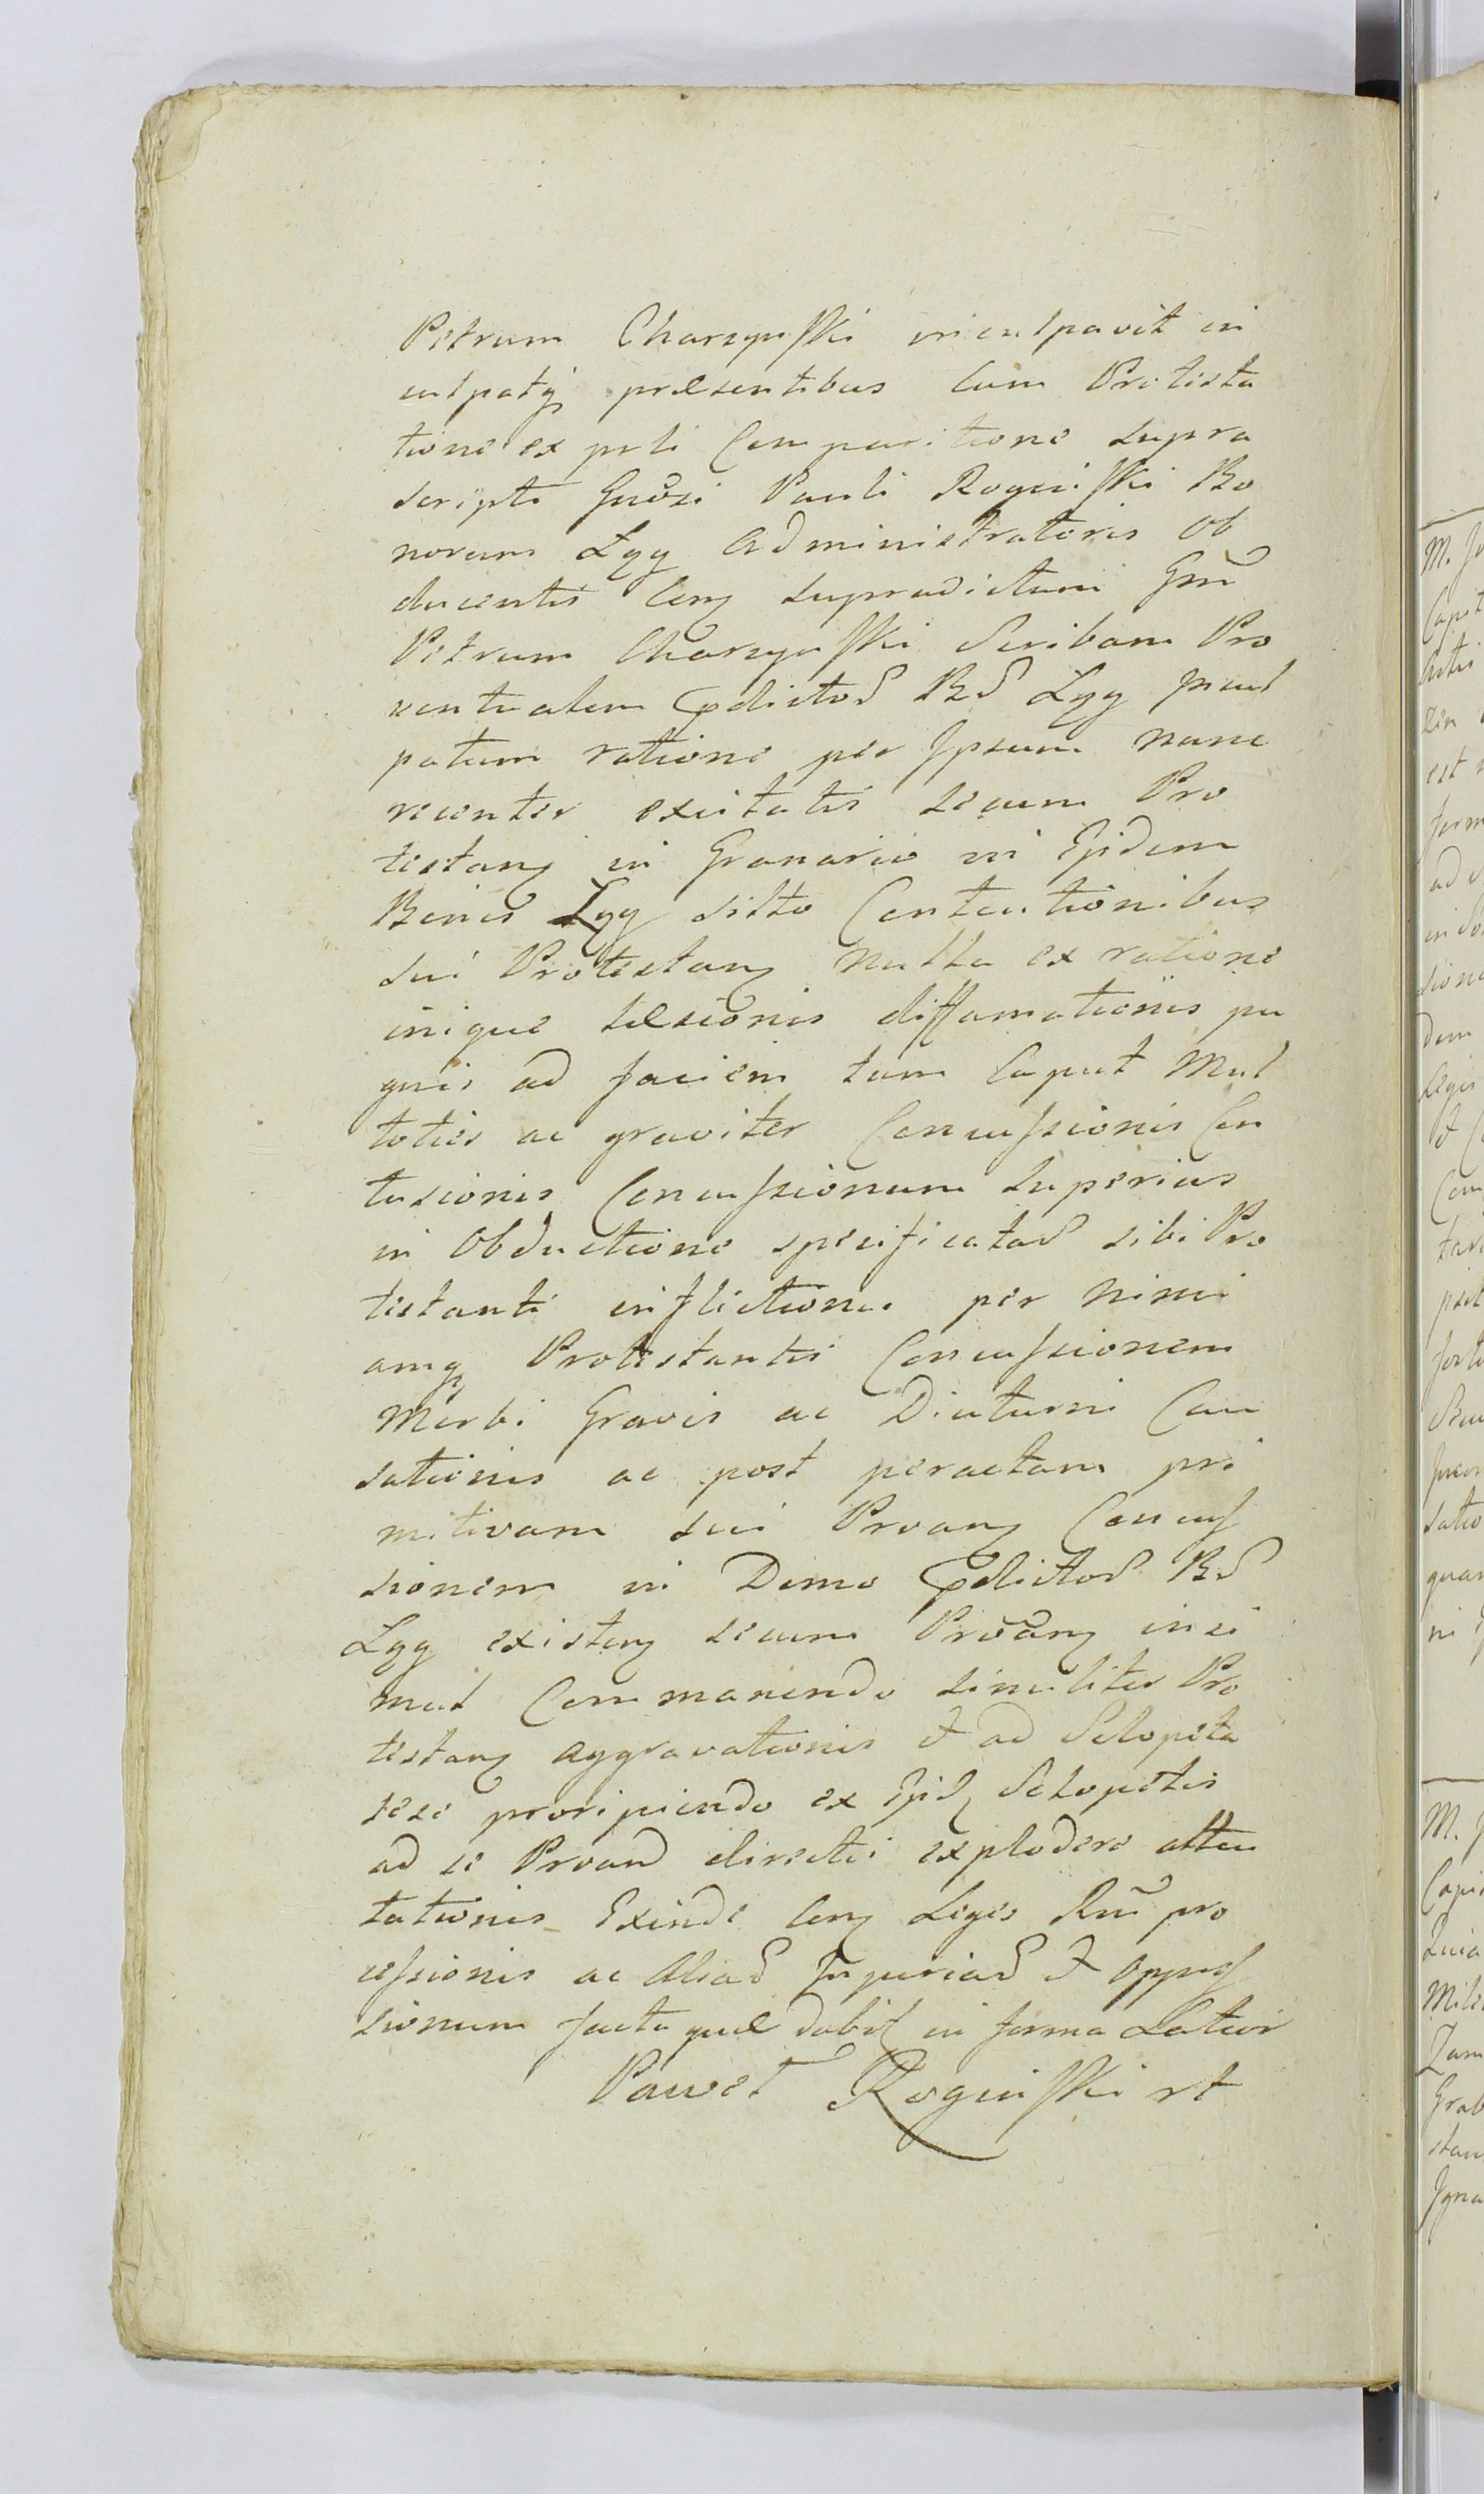 Petrum Charzynski inculpavit in
culpatq præsentibus Cum Protesta
tione ex prti Comparitione supra
scripti Gnosi Pauli Roguiski Bo
norum Lgg Administratoris Ob
ducentis Cong supradictum Gnm
Petrum Charzynski Scribam Pro
ventualem pdictor Br Lgg Incul
patum ratione per Ipsum nunc
recenter excitatis secum Pro
testang in Granario in Ejsdem
Bonis Lgg sitto Contentionibus
sui Protestang nulla ex ratione
inique læsionis diffamationis pu
gnis ad faciem tum Caput Mul
toties ac graviter Concussionis Con
tusionis Concussionum superius
in Obductione specificatar sibi Pro
testanti inflictionis per nimi
amq Protestantis Concussionem
Morbi Gravis ac Diuturni Cau
sationis ac post peractam pri
mitivam sui Prvang Concus
sionem in Domo pdictor Br
Lgg existeng secum Prvang insi
mul Commanendo similiter Pro
testang aggravationis & ad Sclopeta
sese proripiendo ex Ijsd Sclopetis
ad se Prvand directis explodere atten
tationis Exinde Cong Leges Rni pro
cessionis ac Aliar Injuriar & oppres
sionum facta quæ dabit in forma Latior
Paweł Roguiski rt